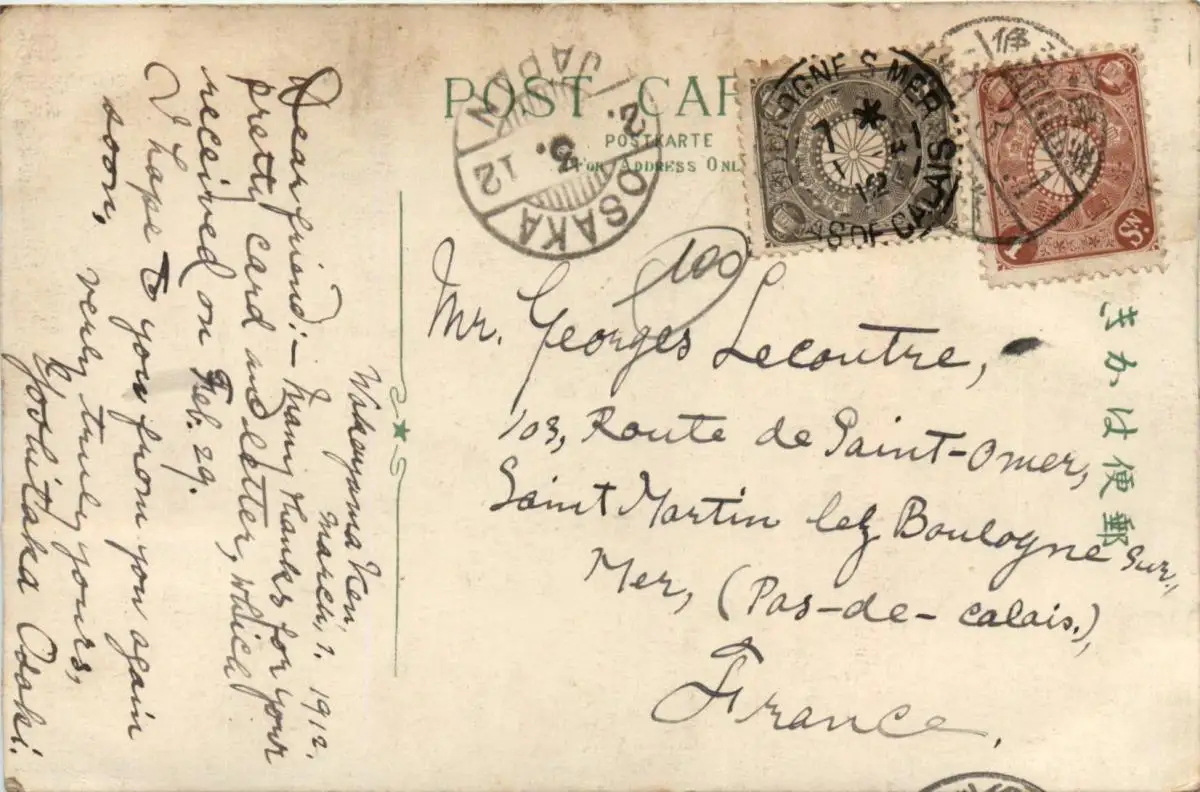 POST CAR
POSTKARTE
For Address Onl
きかは便郵
OSAKA
JAPAN
2. 3. 12
BOULOGNE S MER
PAS DE CALAIS
100
Wakayama Ken,
March, 1. 1912.
Dear friend:— Many thanks for your
pretty card and letter, which
received on Feb. 29.
I hope to you from you again
soon,
very truly yours,
Yoshitaka Osaki.
Mr. Georges Lecoutre,
103, Route de Saint-Omer,
Saint Martin lez Boulogne sur,
Mer, (Pas-de-calais.),
France.